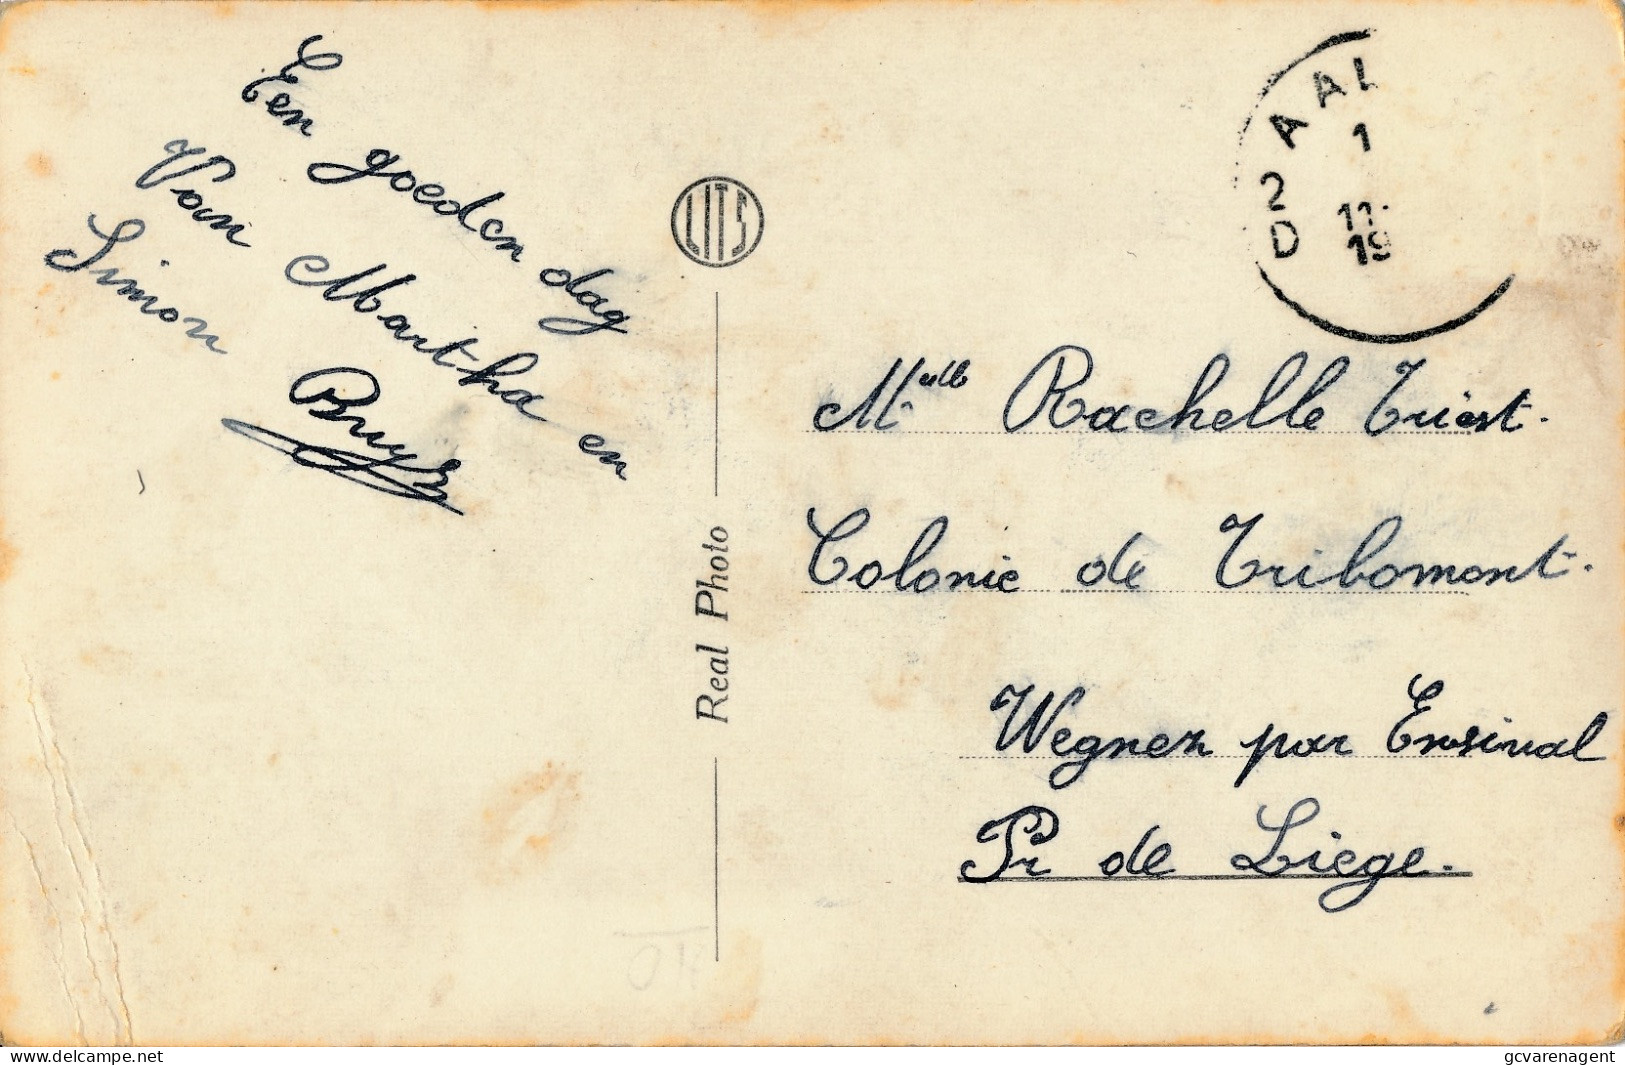 Een goeden dag
Van Martha en
Simon Buys
LITS
Real Photo
AAL
1
2
D
11.
19
Melle Rachelle Triest.
Colonie de Tribomont.
Wegnez par Ensival
Pr de Liege.
delcampe.net
gcvarenagent